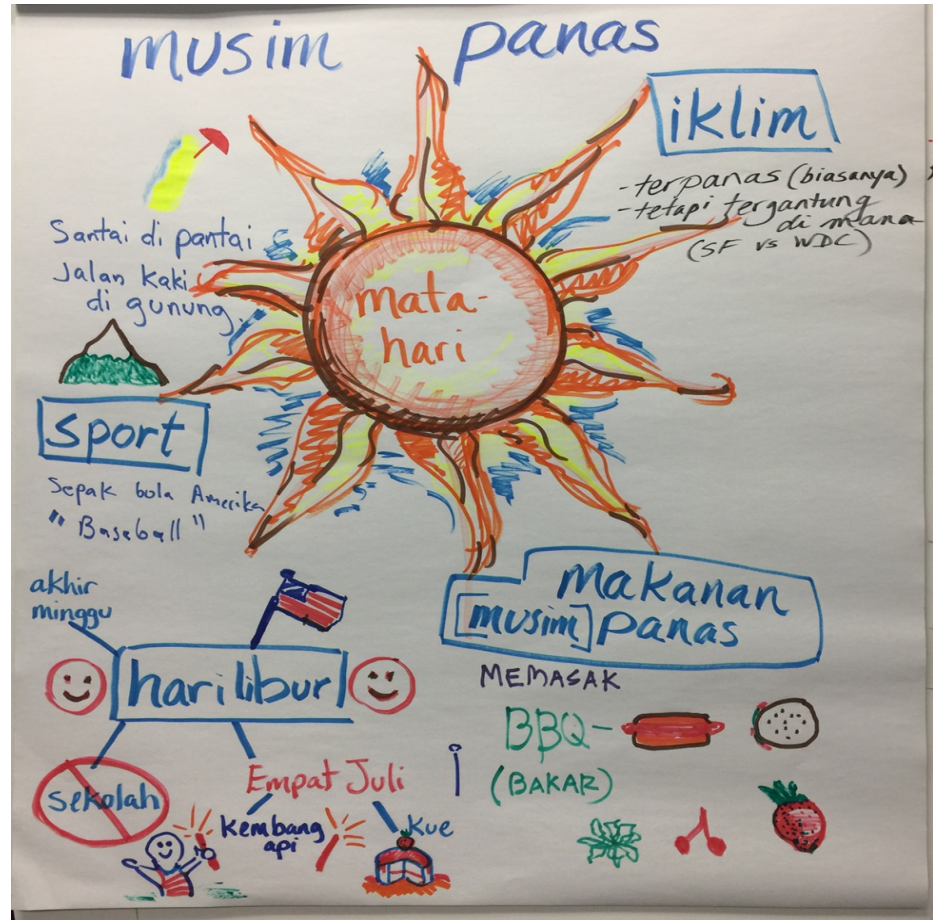 musim panas
iklim
-terpanas (biasanya)
-tetapi tergantung
di mana
(SF vs WDC)
Santai di pantai
Jalan Kaki
di gunung.
mata-
hari
sport
Sepak bola Amerika
"Baseball"
akhir
minggu
hari libur
sekolah
Empat Juli
Kembang
api
Kue
makanan
[musim] panas
MEMASAK
BBQ-
(BAKAR)